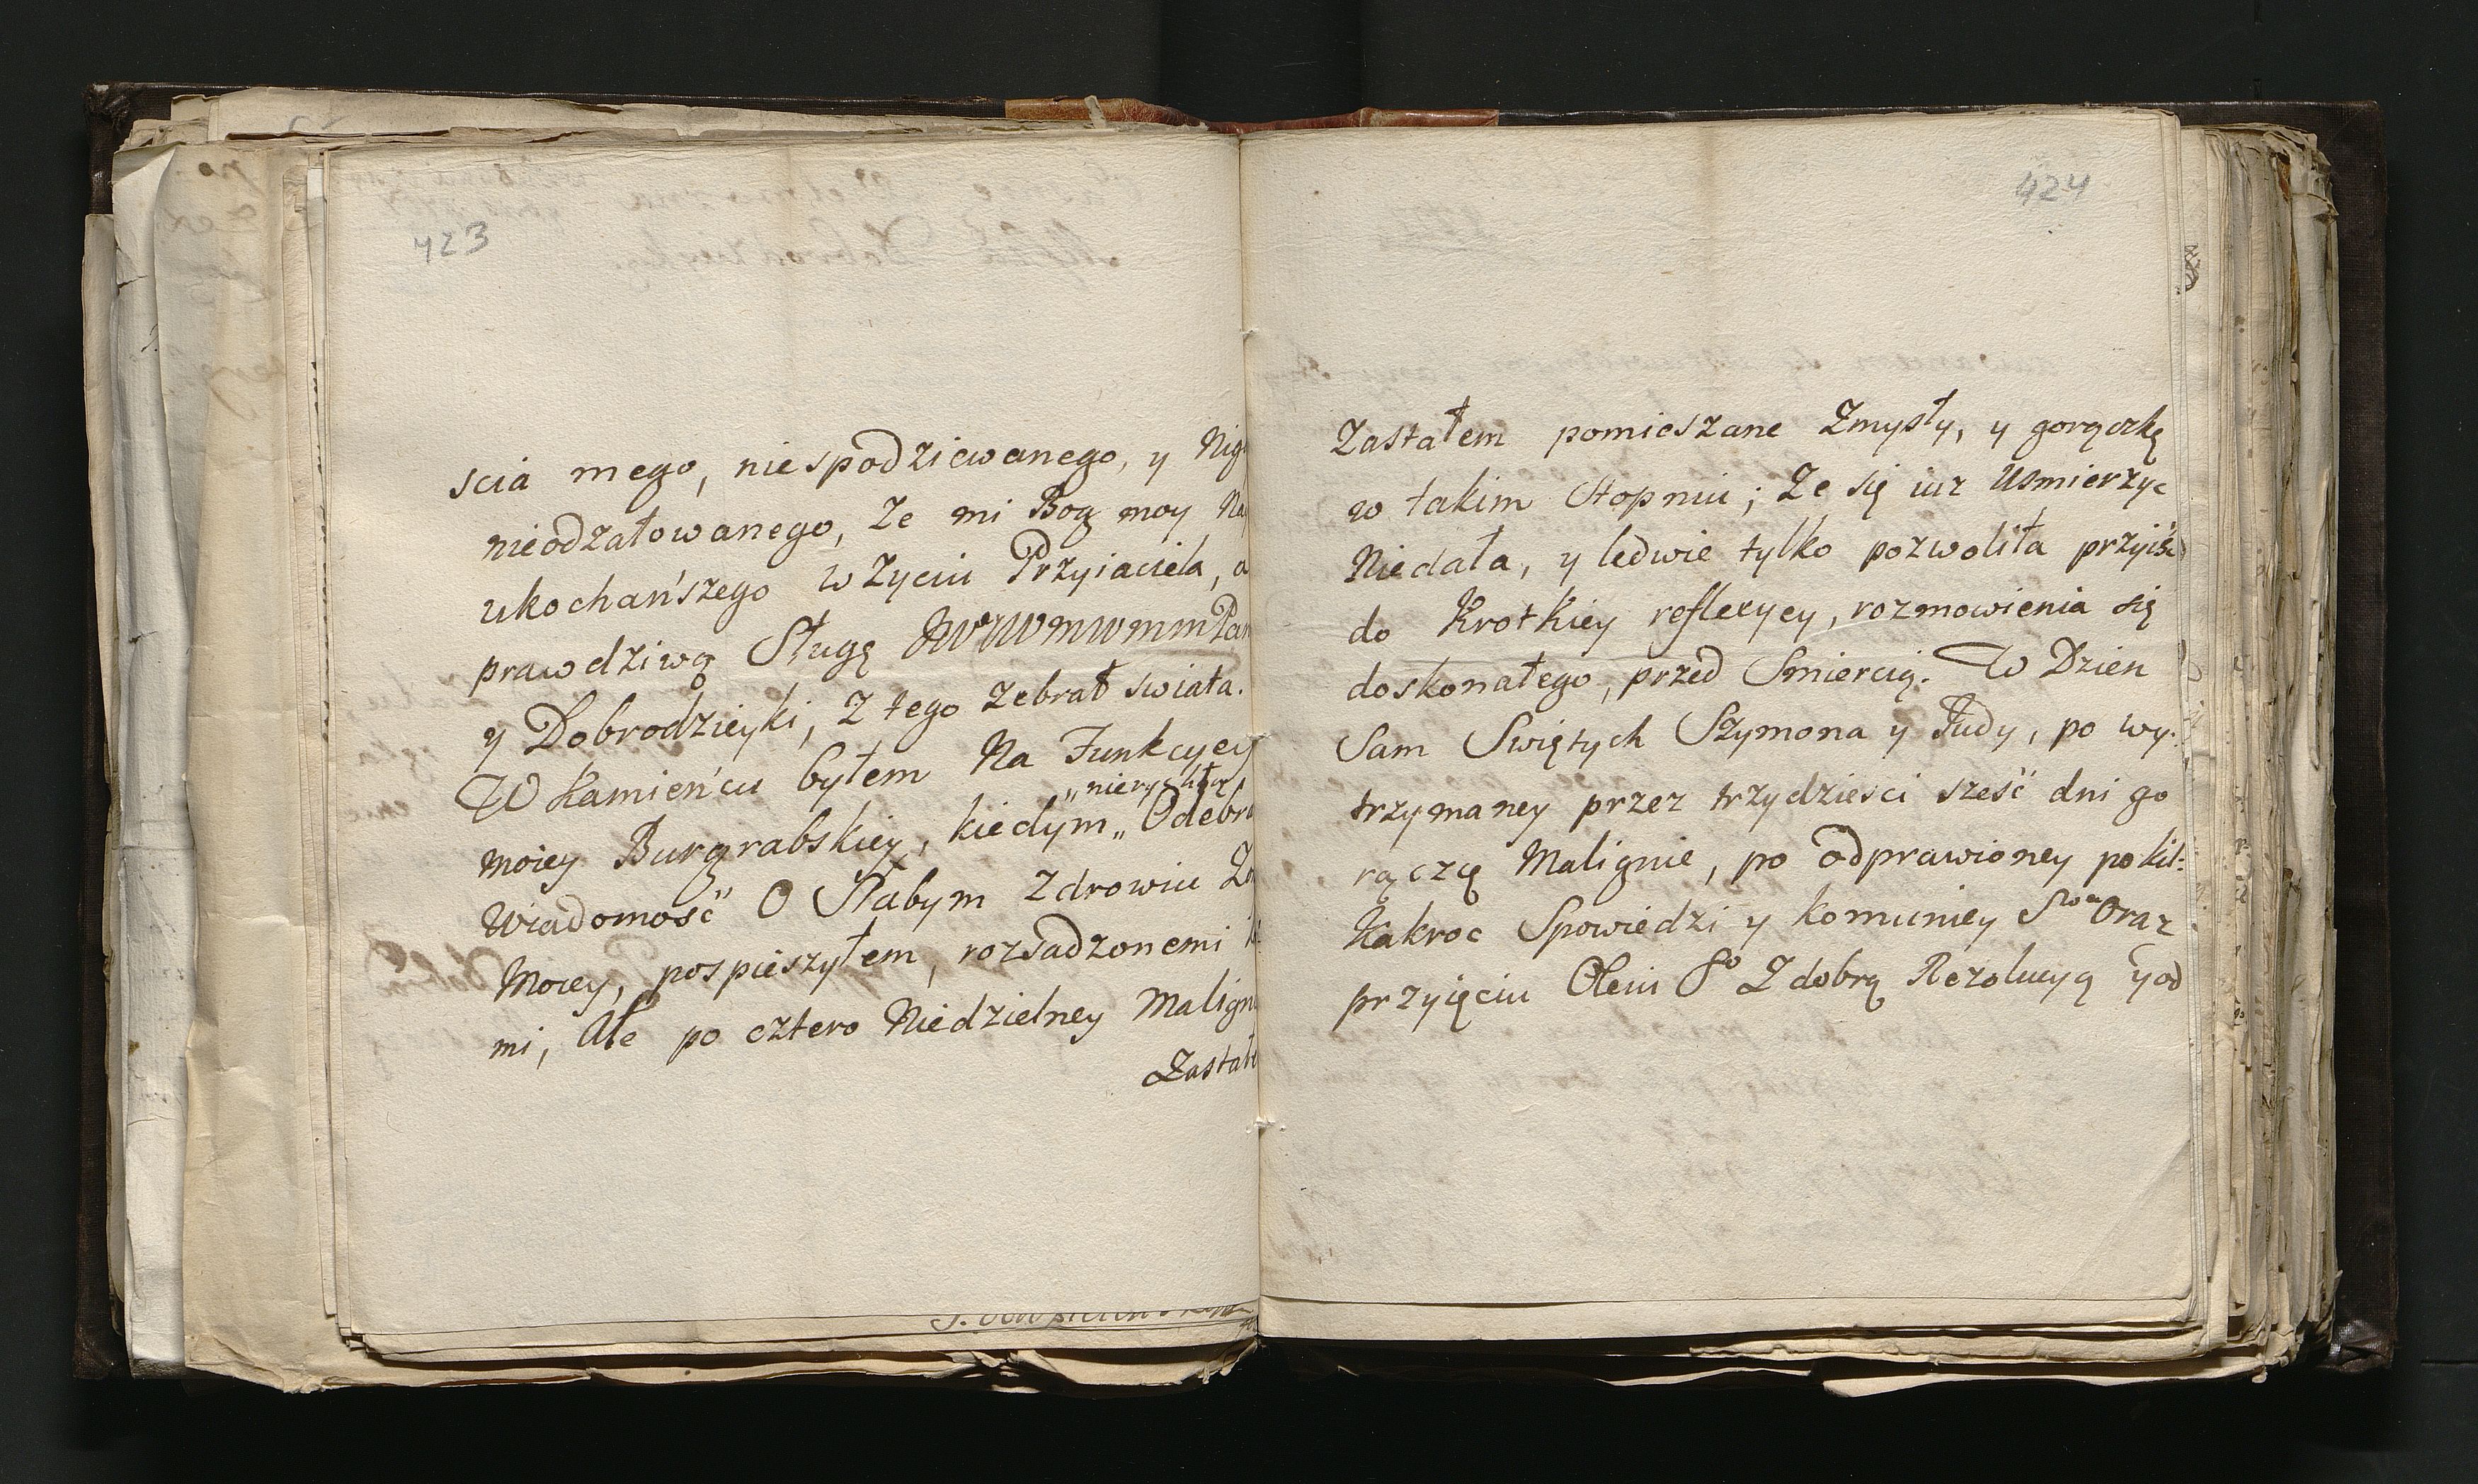 423
scia mego, niespodziewanego, y Nig
nieodzałowanego, Ze mi Bog moy Na
ukochańszego w Zyciu Przyiaciela, a
prawdziwą Sługę JWWmWmmPan
y Dobrodzieyki, Z tego Zebrał swiata.
W Kamieńcu byłem Na Funkcyey
moiey Burgrabskiey, kiedym „ Odebra
„ nierychłą
Wiadomość O Słabym Zdrowiu Zo
Moiey, pospieszyłem, rozsadzonemi
mi, Ale po cztero Niedzielney Malign
Zastałe
424
Zastałem pomieszane Zmysły, y gorączkę
w takim Stopniu; Ze się iuz Usmierzyc
Niedała, y ledwie tylko pozwoliła przyiść
do Krotkiey reflexyey, rozmowienia się
doskonałego, przed Smiercią. W Dzien
Sam Swiętych Szymona y Judy, po wy:
trzymaney przez trzydziesci sześć dni go
rączcę Malignie, po odprawioney pokil:
Kakroc Spowiedzi y Komuniey Swa Oraz
przyięciu Oleiu So Z dobrą Rezolucyą y od